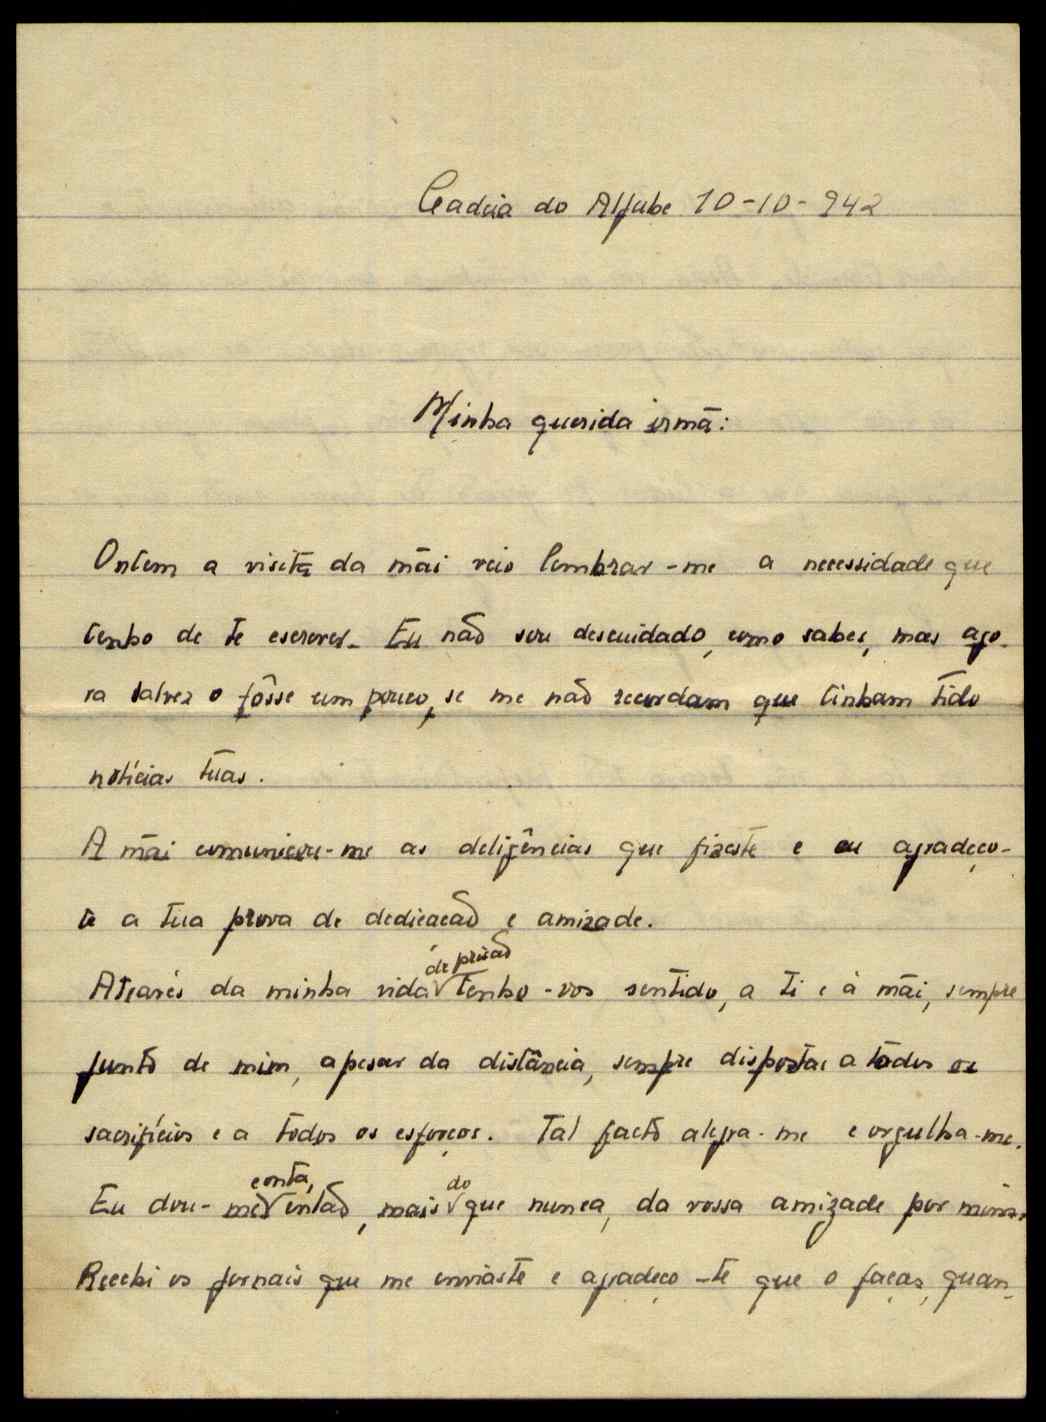 Cadeia do Aljube 10-10-942
Minha querida irmã:
Ontem a visita da mãi veio lembrar-me a necessidade que
tenho de te escrever. Eu não sou descuidado, como sabes, mas ago-
ra talvez o fôsse um pouco, se me não recordam que tinham tido
notícias tuas.
A mãi comunicou-me as deligências que fizeste e eu agradeço-
te a tua prova de dedicacão e amizade.
Através da minha vida de prisão tenho-vos sentido, a ti e à mãi, sempre
junto de mim, apesar da distância, sempre dispostas a todos os
sacrifícios e a todos os esforços. Tal facto alegra-me e orgulha-me.
Eu dou-me conta, então, mais do que nunca, da vossa amizade por mim.
Recebi os jornais que me enviaste e agradeço-te que o faças, quan-